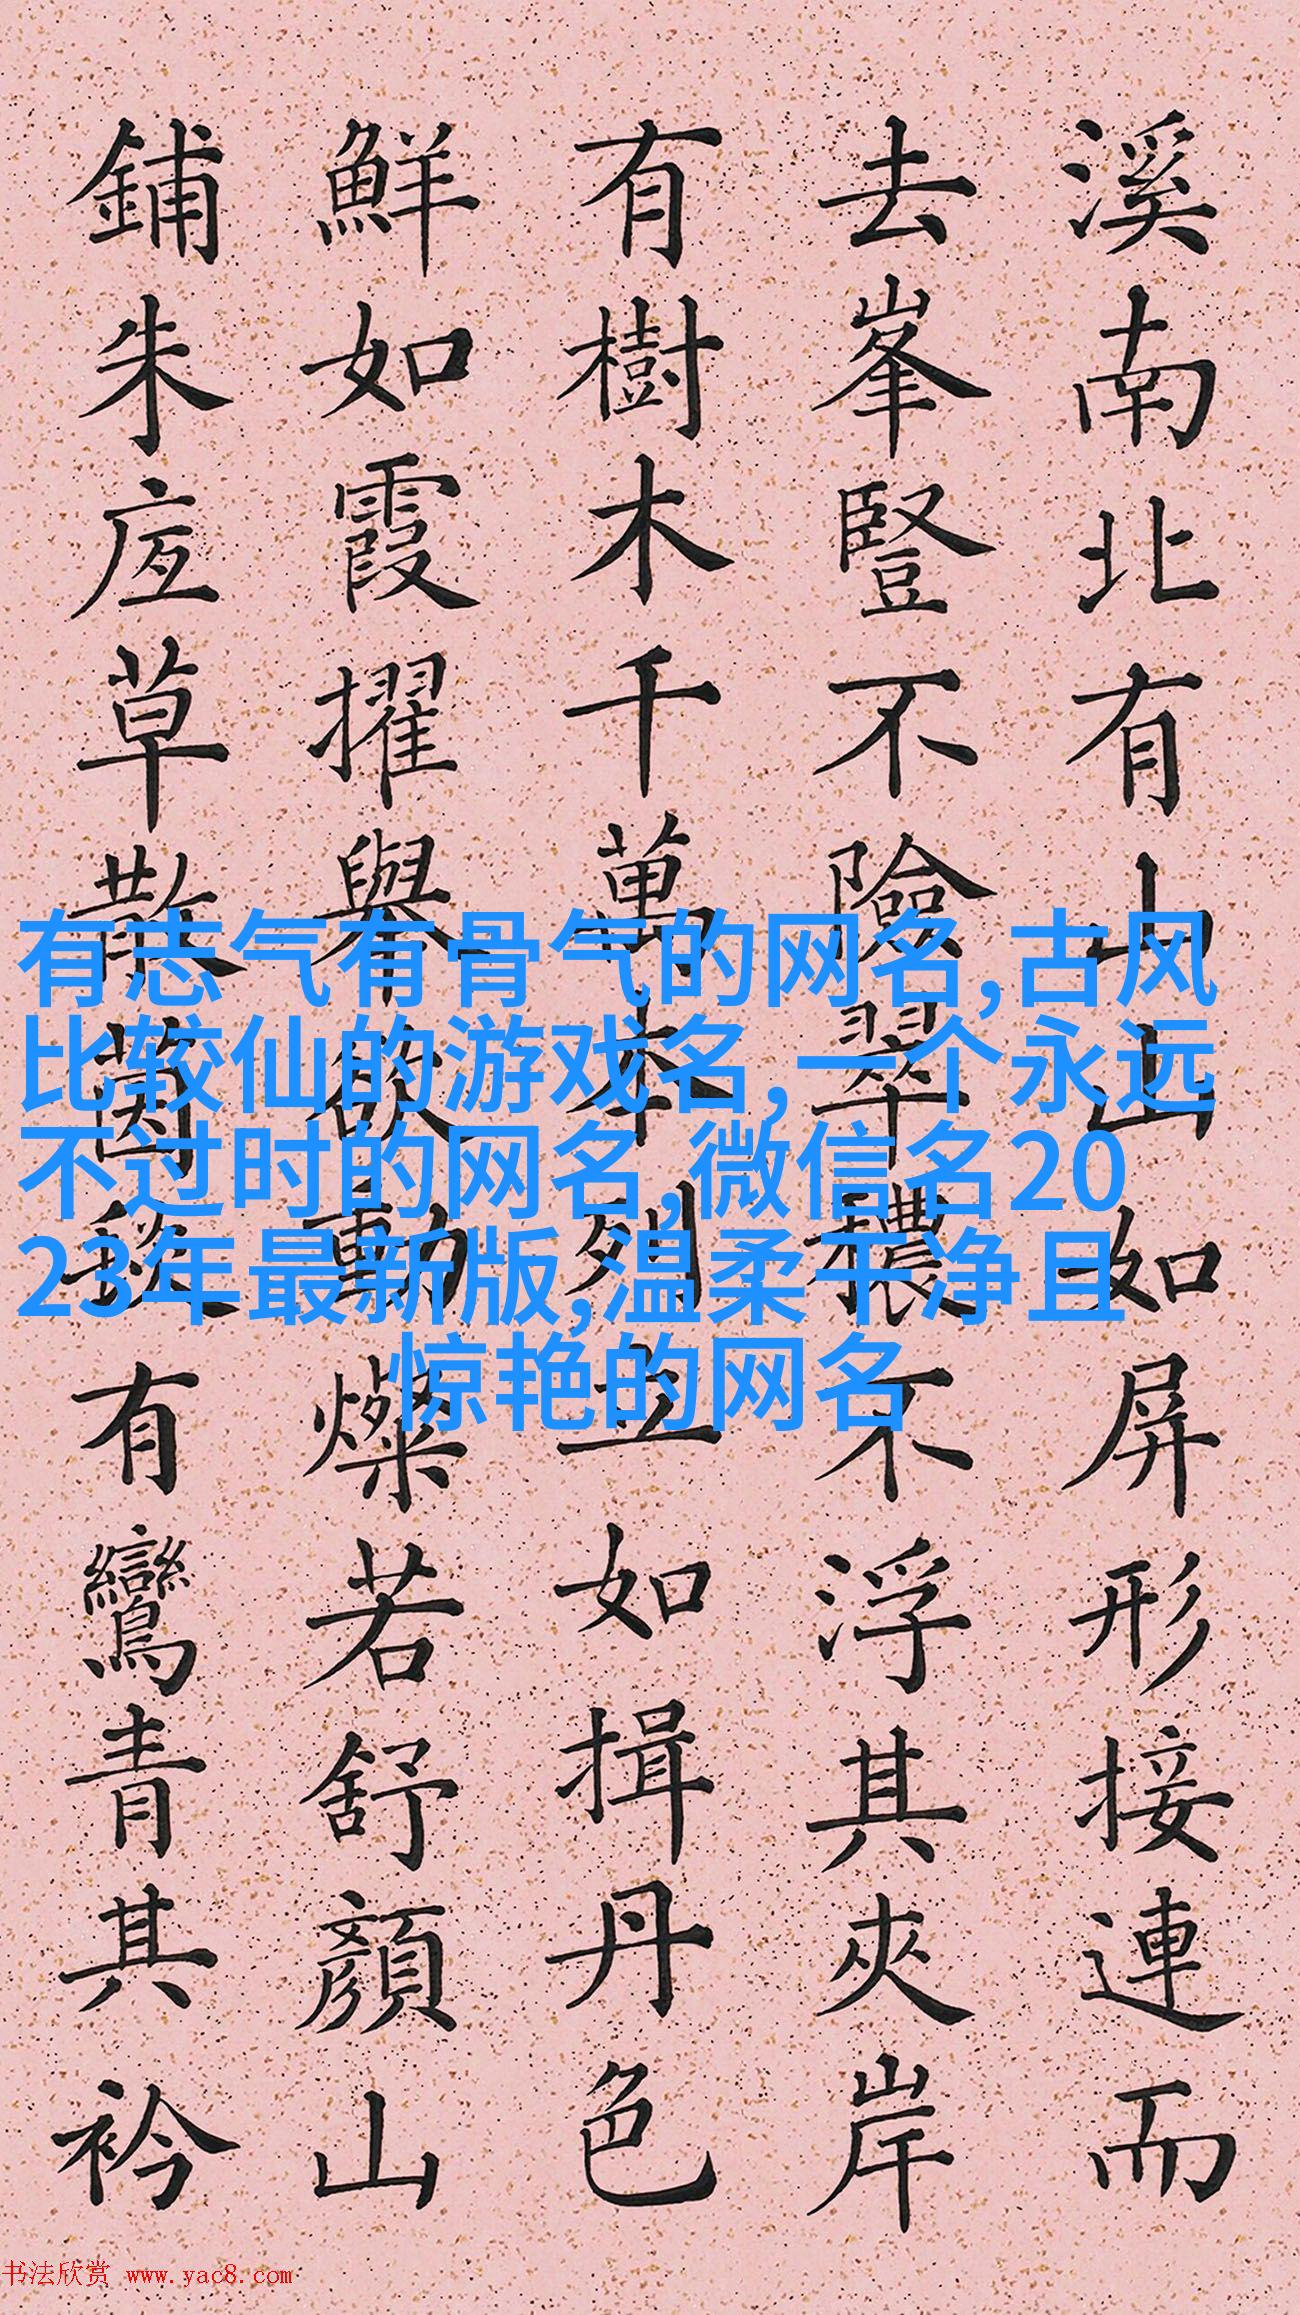 溪南北有山山如屏形接連而
去峯豎不險翠穠不浮其夾岸
有樹木千萬本列立如揖丹色
鮮如霞擢舉欲動燦若舒顏山
鋪朱庑草散茵毯有鸞青其衿
有志气有骨气的网名,古风
比较仙的游戏名,一个永远
不过时的网名,微信名20
23年最新版,温柔干净且
惊艳的网名
书法欣赏 www.yac8.com